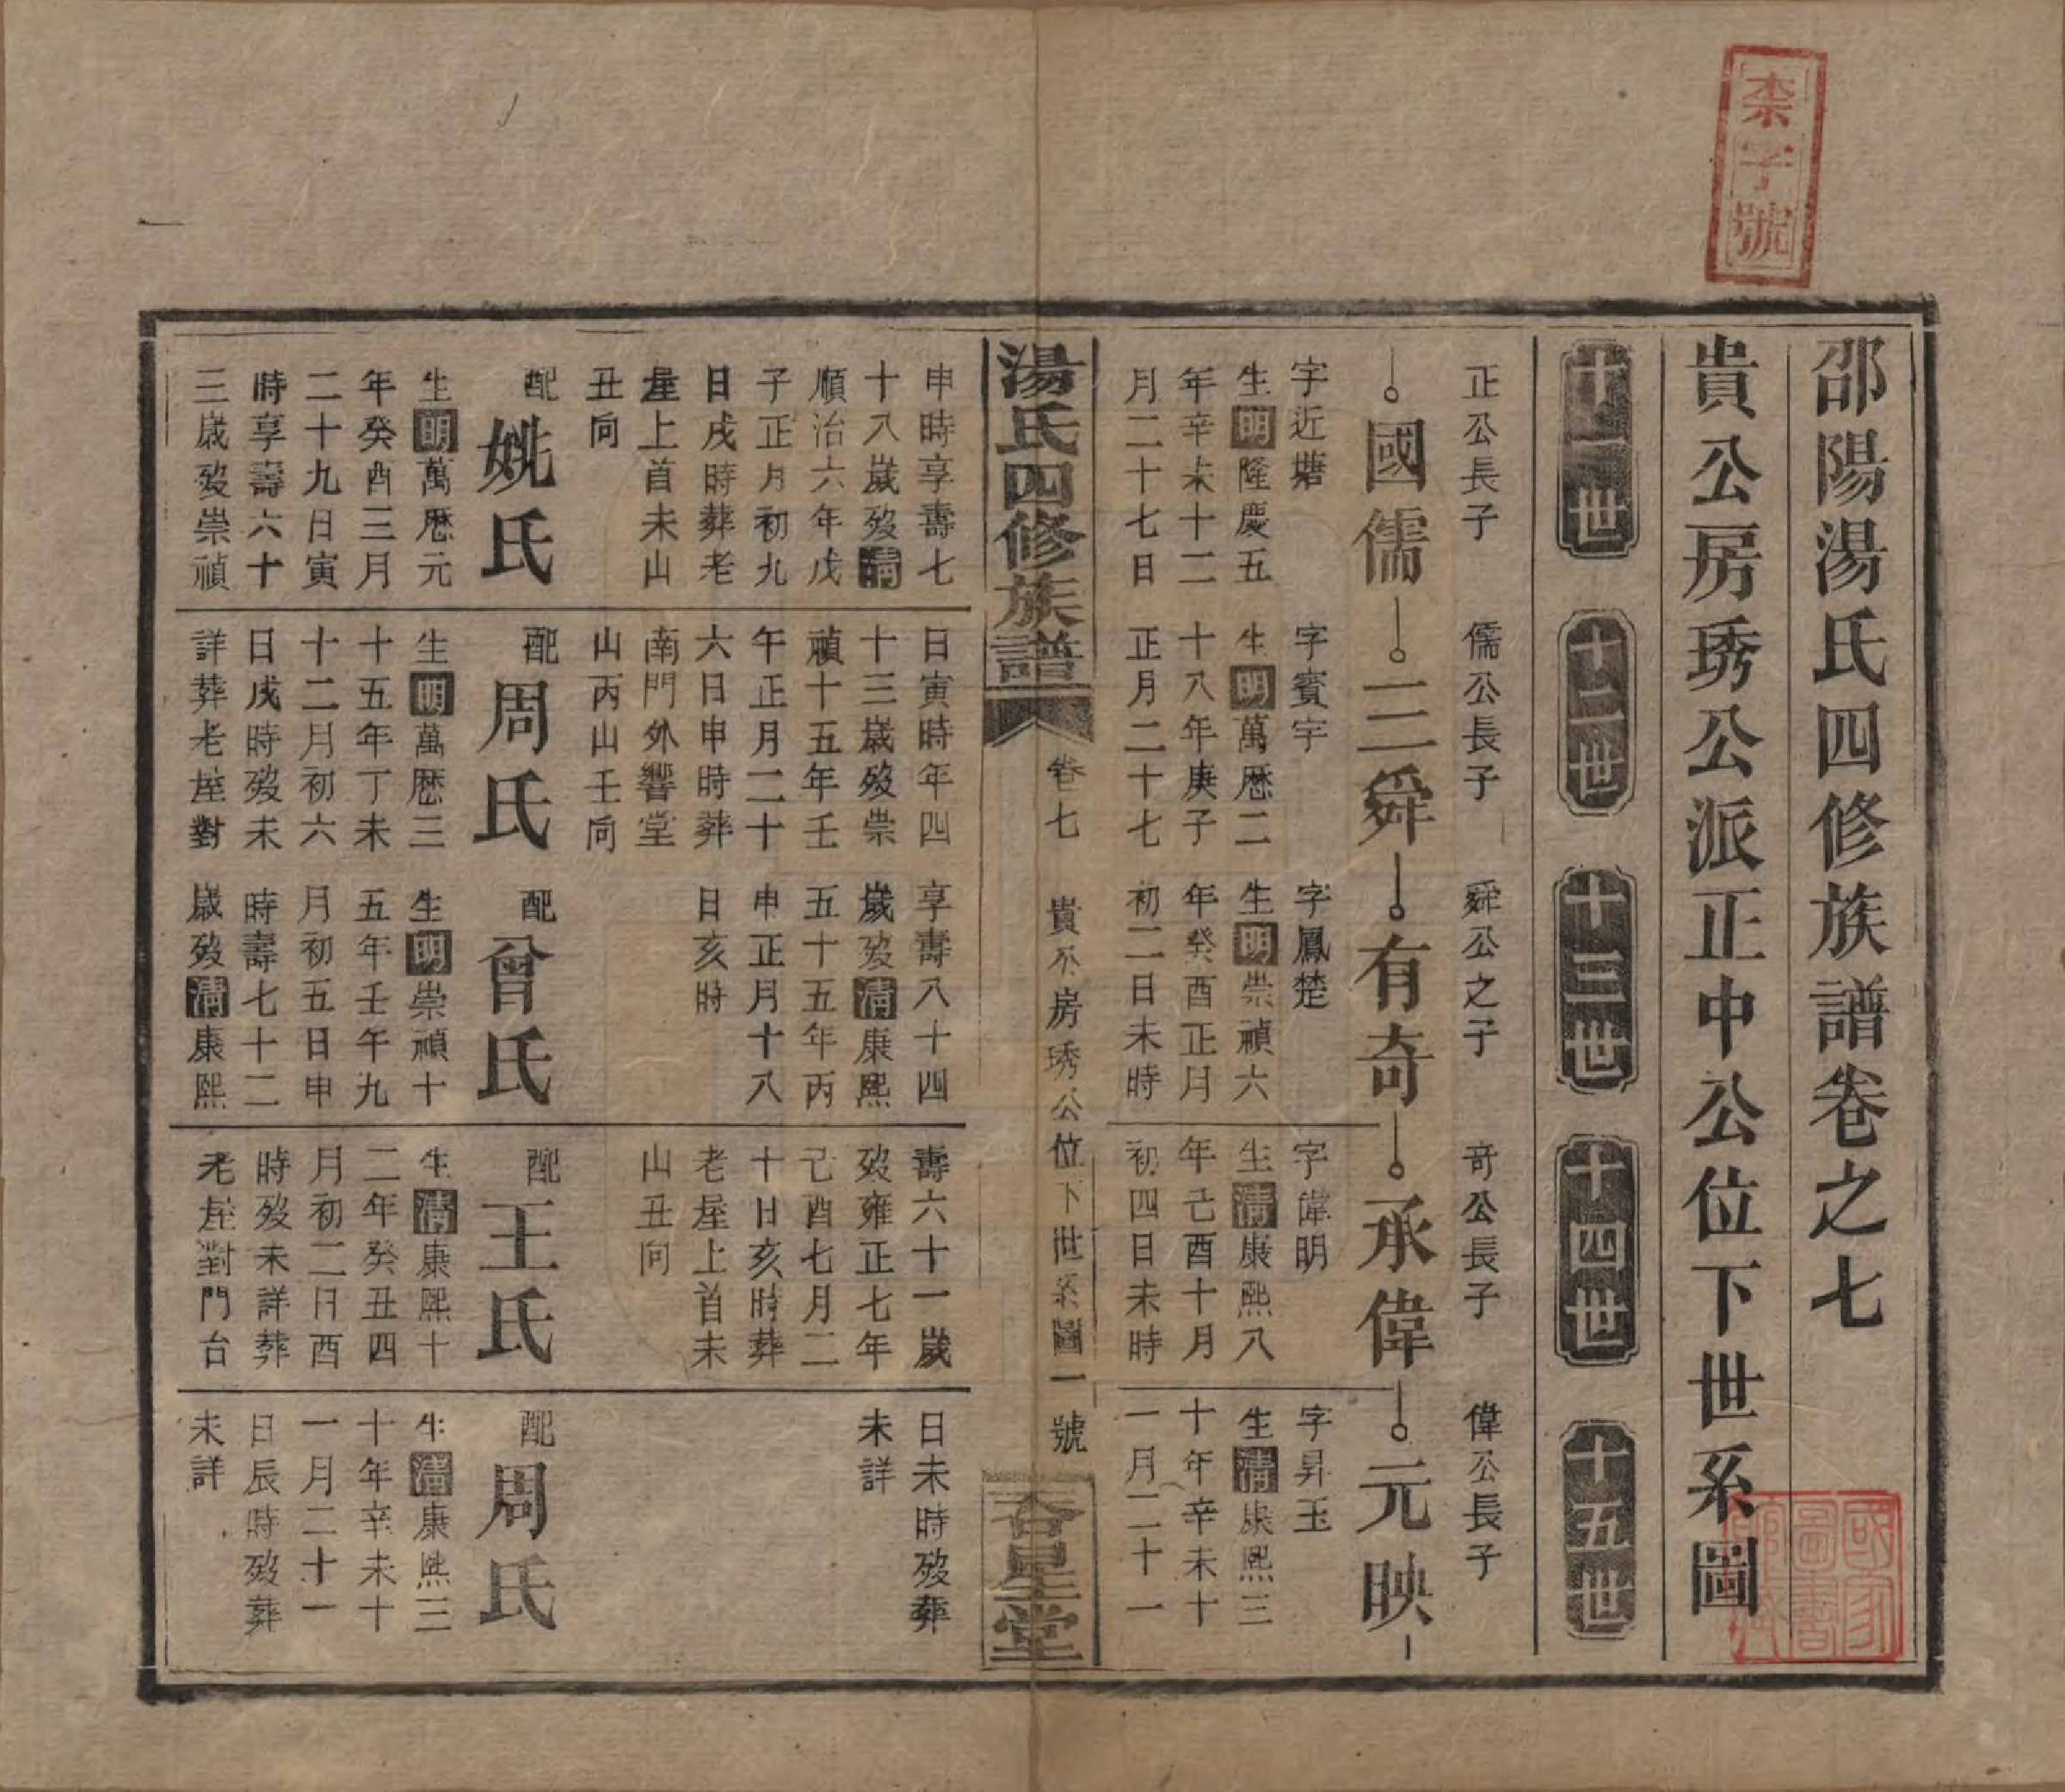 柰字號
邵陽湯氏四修族譜卷之七
貴公房琇公派正中公位下世系圖
十一世
十二世
十三世
十四世
十五世
正公長子
國儒
字近塘
生明隆慶五
年辛未十二
月二十七日
申時享壽七
十八歲歿清
順治六年戊
子正月初九
日戌時葬老
屋上首未山
丑向
配
姚氏
生明萬厯元
年癸酉三月
二十九日寅
時享壽六十
三歲歿崇禎
儒公長子
三舜
字賓宇
生明萬厯二
十八年庚子
正月二十七
日寅時年四
十三歲歿崇
禎十五年壬
午正月二十
六日申時葬
南門外響堂
山丙山壬向
配
周氏
生明萬厯三
十五年丁未
十二月初六
日戌時歿未
詳葬老屋對
舜公之子
有奇
字鳳楚
生明崇禎六
年癸酉正月
初二日未時
享壽八十四
歲歿清康熙
五十五年丙
申正月十八
日亥時
配
曾氏
生明崇禎十
五年壬午九
月初五日申
時壽七十二
歲歿清康熙
奇公長子
承偉
字偉明
生清康熙八
年己酉十月
初四日未時
壽六十一歲
歿雍正七年
己酉七月二
十日亥時葬
老屋上首未
山丑向
配
王氏
生清康熙十
二年癸丑四
月初二日酉
時歿未詳葬
老屋對門台
偉公長子
元映
字昇玉
生清康熙三
十年辛未十
一月二十一
日未時歿葬
未詳
配
周氏
生清康熙三
十年辛未十
一月二十一
日辰時歿葬
未詳
湯氏四修族譜
卷七
貴公房琇公位下世系圖一號
杏星堂
國家圖書館